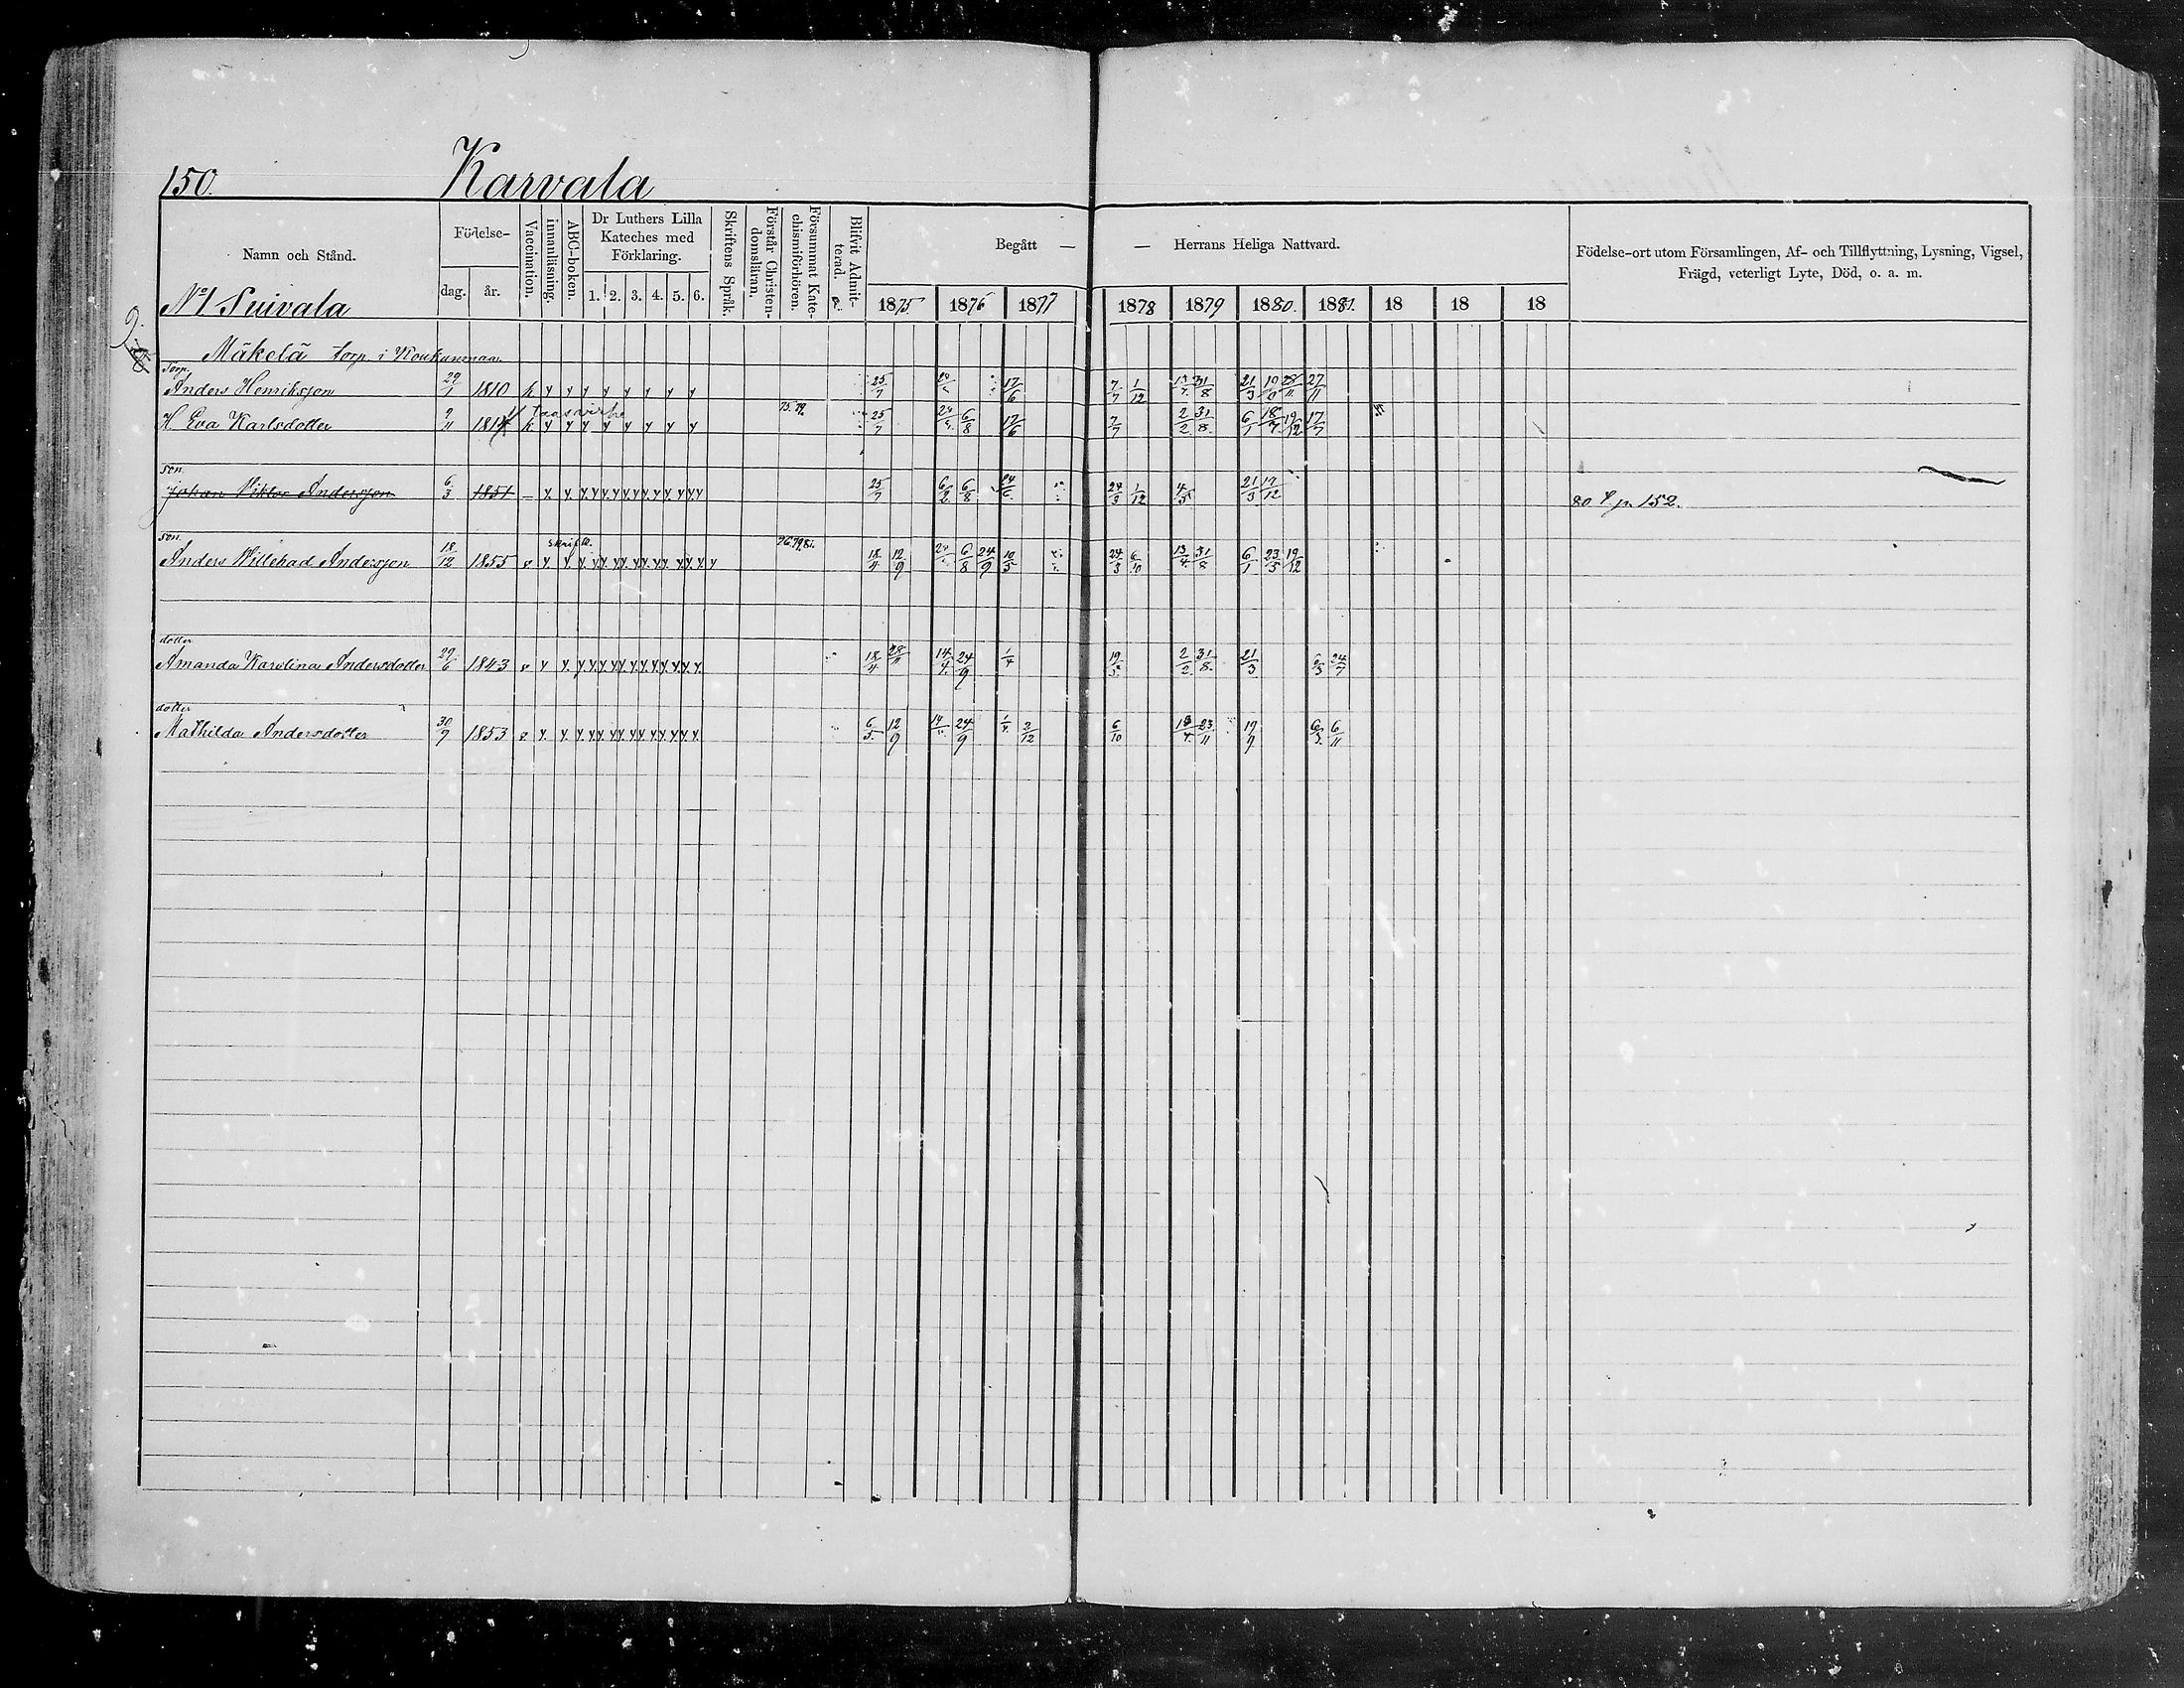 150. Karvala
Namn och Stånd.
Födelse-
dag. år.
Vaccination.
innanläsning.
ABC-boken.
Dr Luthers Lilla
Kateches med
Förklaring.
1. 2. 3. 4. 5. 6.
Skriftens Språk.
Förstår Christen-
domsläran.
Försummat Kate-
chismiförhören.
Blifvit Admit-
terad.
Begått — — Herrans Heliga Nattvard.
1875 1876 1877 1878 1879 1880. 1881. 18 18 18
Födelse-ort utom Församlingen, Af- och Tillflyttning, Lysning, Vigsel,
Frägd, veterligt Lyte, Död, o. a. m.
No 1 Suivala
Mäkelä torp. i Koukunmaa
Torp.
Anders Henriksson 29/1 1810 25/7 17/6 7/7 1/12 31/8 21/3 28/11 27/11
75.79.
H. Eva Karlsdotter 9/11 25/7 6/8 17/6 7/7 2/2 31/8 6/1 19/12 17/7
son.
Johan Viktor Andersson 6/3 1851 25/7 6/2 6/8 24/6 24/3 1/12 4/5 21/3 17/12 80 p. 152.
son. skrifk. 76.79.81.
Anders Willehad Andersson 18/12 1855 18/4 12/9 6/8 24/9 10/5 24/3 6/10 13/4 31/8 6/1 23/5 19/12
dotter
Amanda Karolina Andersdotter 29/6 1843 18/4 28/11 14/4 24/9 1/4 19/5 2/2 31/8 21/3 6/3 24/7
dotter
Mathilda Andersdotter 30/9 1853 6/5 12/9 24/9 1/4 2/12 6/10 13/4 23/11 17/9 6/3 6/11